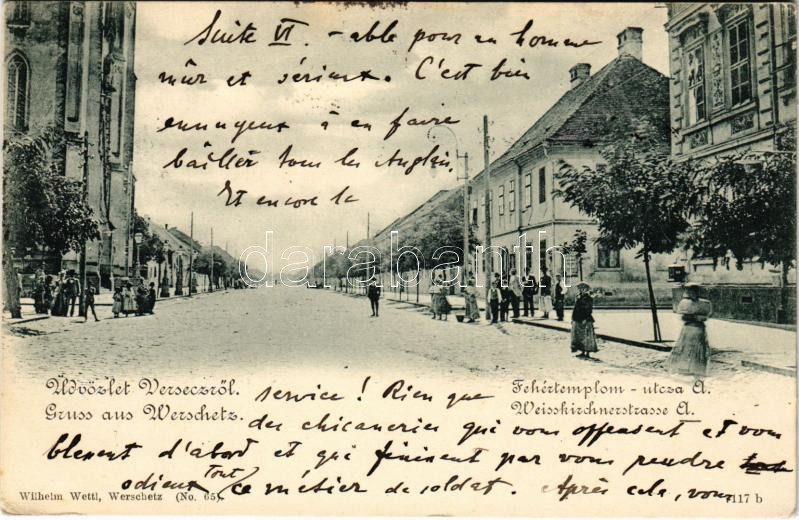 Suite VI. - able pour un homme
mûr et sérieux. C'est bien
ennuyeux à en faire
bâiller tous les Anglais.
Et encore le
darabanth
Üdvözlet Verseczről.
Gruss aus Werschetz.
Fehértemplom - utcza A.
Weisskirchnerstrasse A.
service! Rien que
des chicaneries qui vous offensent et vous
blessent d'abord et qui finissent par vous rendre
odieux tout ce métier de soldat. Après cela, vous
Wilhelm Wettl, Werschetz (No. 65).
7117 b